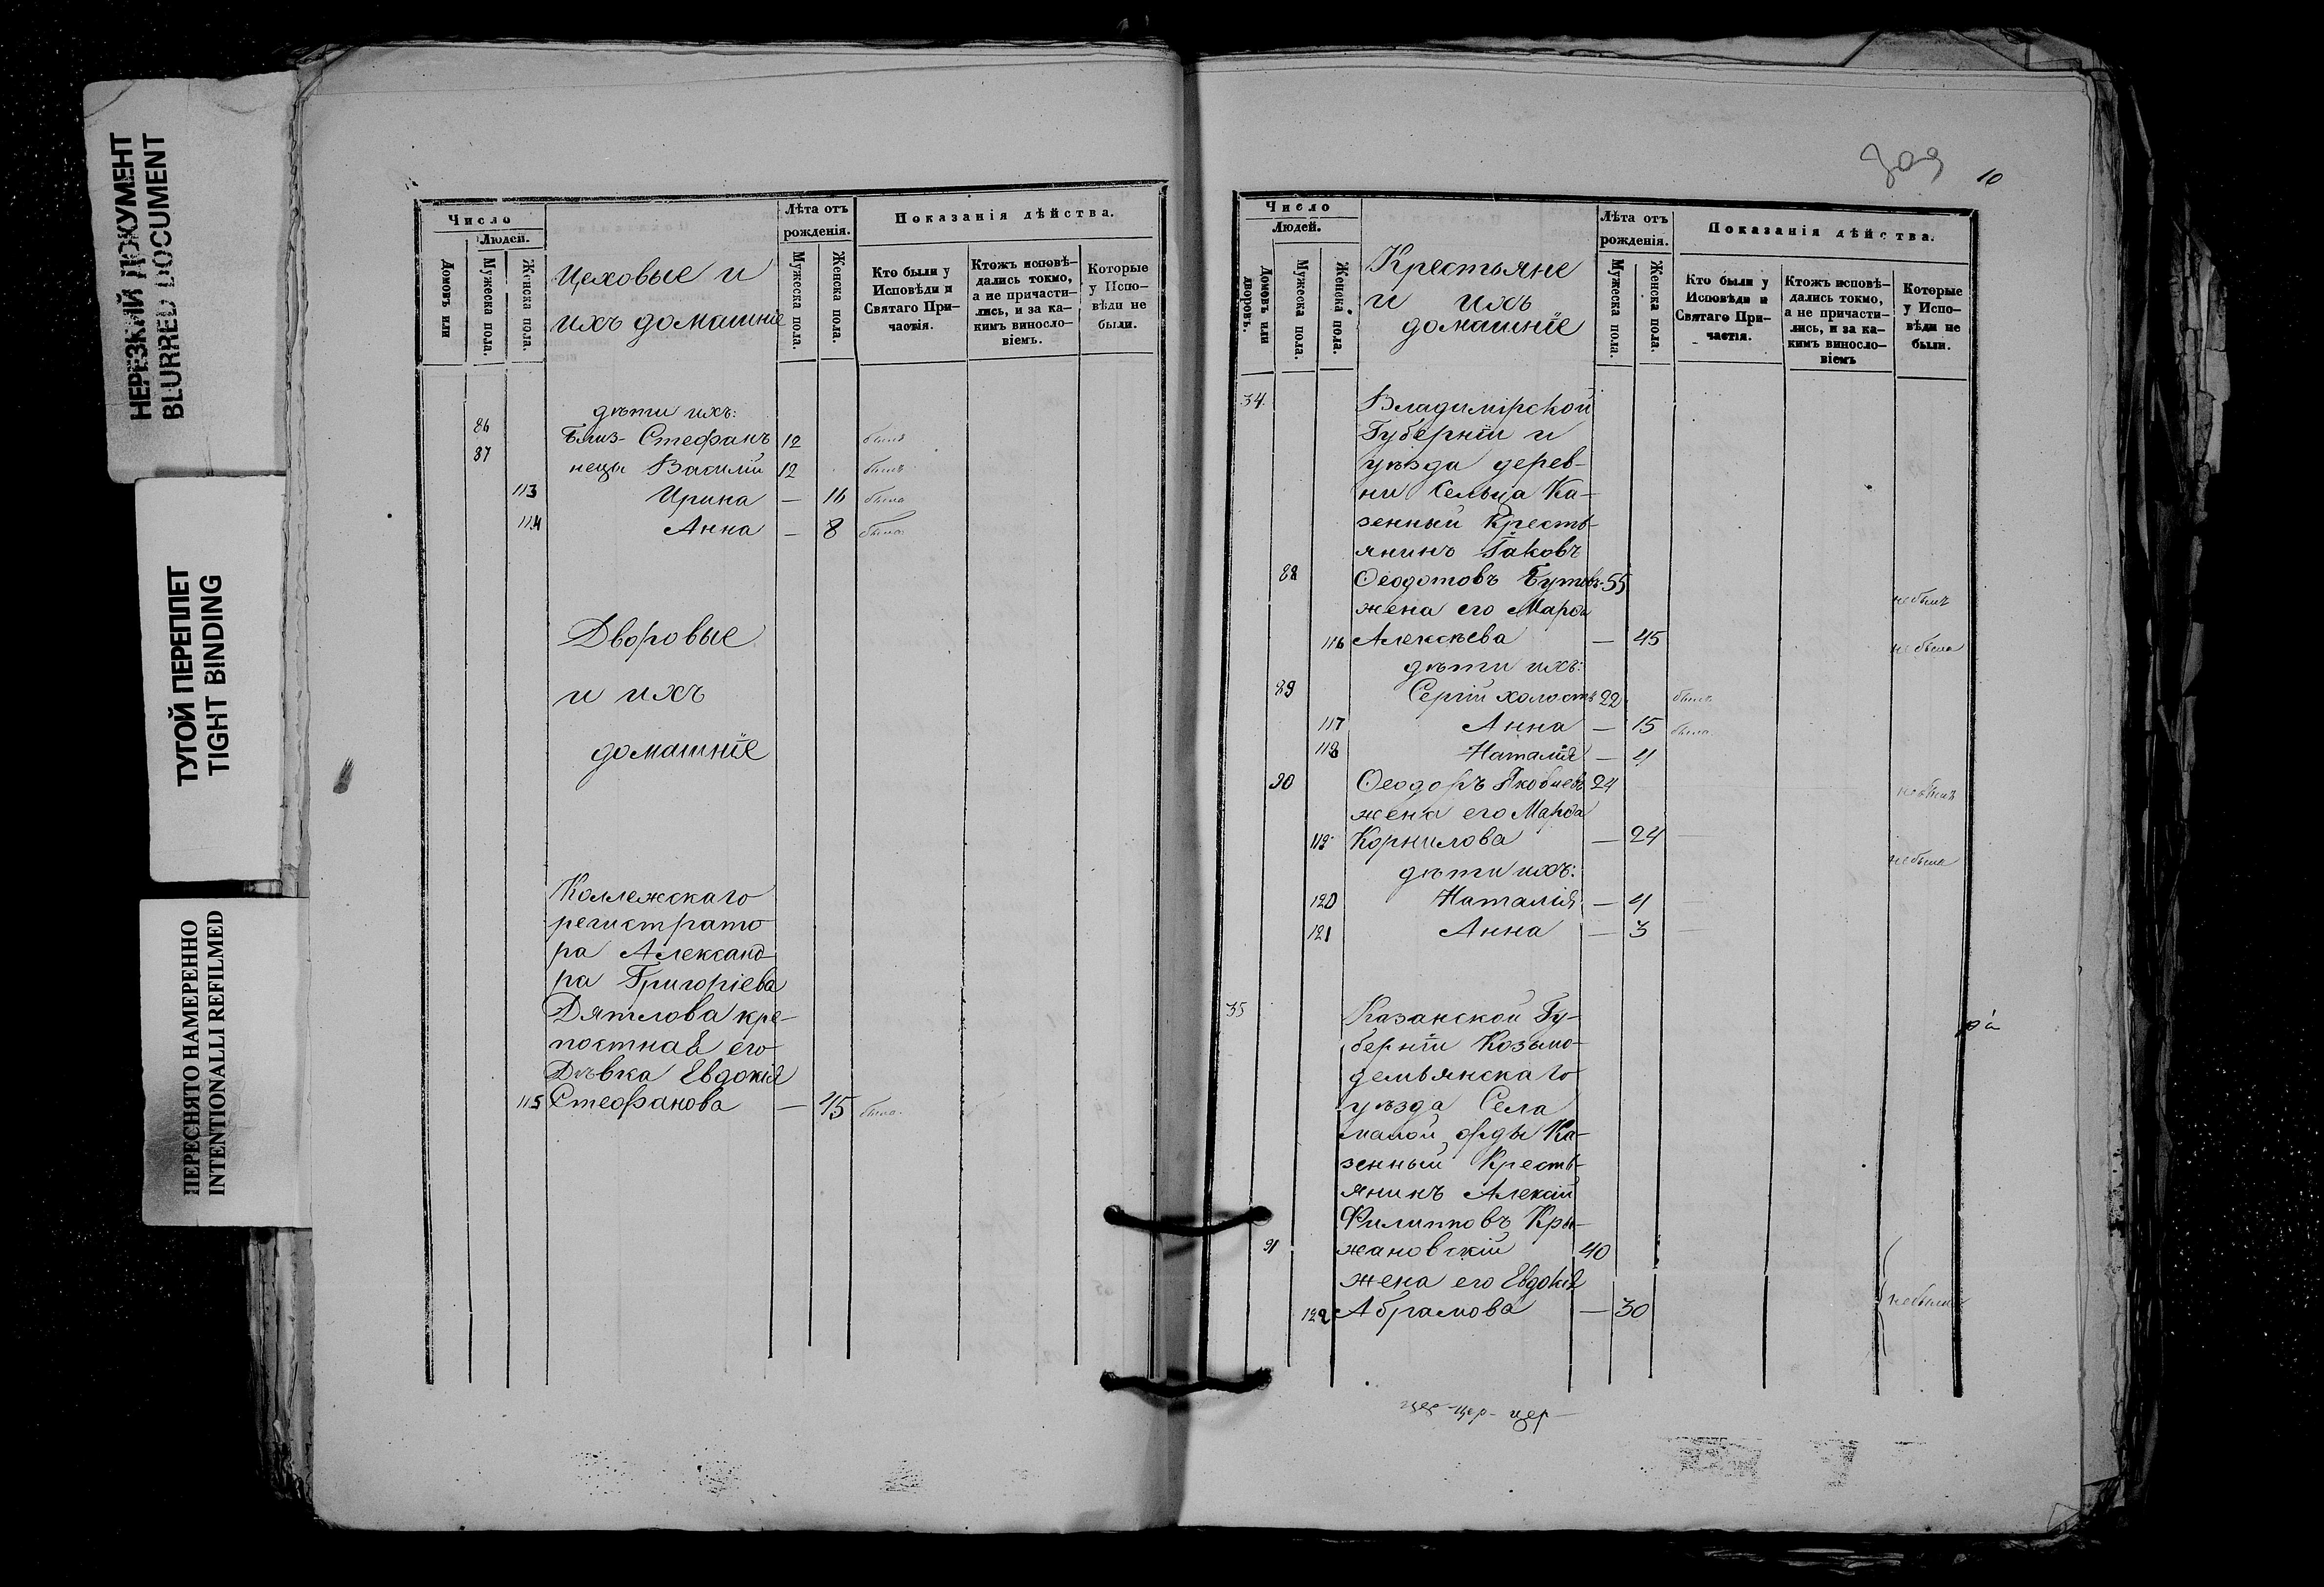 НЕРЕЗКИЙ ДОКУМЕНТ
BLURRED DOCUMENT
ТУГОЙ ПЕРЕПЛЕТ
TIGHT BINDING
ПЕРЕСНЯТО НАМЕРЕННО
INTENTIONALLI REFILMED
Число
Людей.
Домовъ или
Мужеска пола.
Женска пола.
Цеховые и
ихъ домашніе
Лѣта отъ
рожденія.
Мужеска пола.
Женска пола.
Показанія дѣйства.
Кто были у
Исповѣди и
Святаго При-
частія.
Ктожъ исповѣ-
дались токмо,
а не причасти-
лись, и за ка-
кимъ виносло-
віемъ.
Которые
у Испо-
вѣди не
были.
дѣти ихъ:
86 Близ- Стефанъ 12 былъ
87 нецы Василій 12 былъ
113 Ирина — 16 была
114 Анна — 8 была
Дворовые
и ихъ
домашніе
Коллежскаго
регистрато
ра Александ-
ра Григоріева
Дятлова кре-
постная его
Дѣвка Евдокія
115 Стефанова — 45 была
10
Число
Людей.
Домовъ или
дворовъ.
Мужеска пола.
Женска пола.
Крестьяне
и ихъ
домашніе
Лѣта отъ
рожденія.
Мужеска пола.
Женска пола.
Показанія дѣйства.
Кто были у
Исповѣди и
Святаго При-
частія.
Ктожъ исповѣ-
дались токмо,
а не причасти-
лись, и за ка-
кимъ виносло-
віемъ
Которые
у Испо-
вѣди не
были.
34. Владимірской
Губерніи и
уѣзда дерев-
ни Сельца Ка-
зенный Кресть-
янинъ Іаковъ
88 Ѳеодотовъ 55 не былъ
жена его Марѳа
116 Алексѣева — 45 не была
дѣти ихъ:
89 Сергій холостъ 22 былъ
117 Анна — 15 была
118 Наталія — 4
90 Ѳеодоръ Яковлевъ 24 не былъ
жена его Марѳа
119 Корнилова — 24 не была
дѣти ихъ:
120 Наталія — 4
121 Анна — 3
35 Казанской Гу-
берніи Козьмо-
демьянскаго
уѣзда Села
малой орды Ка-
зенный Кресть-
янинъ Алексій
Филипповъ Кры-
91 жановскій 40
жена его Евдокія
122 Абрамова — 30 не были
цер- цер- цер-